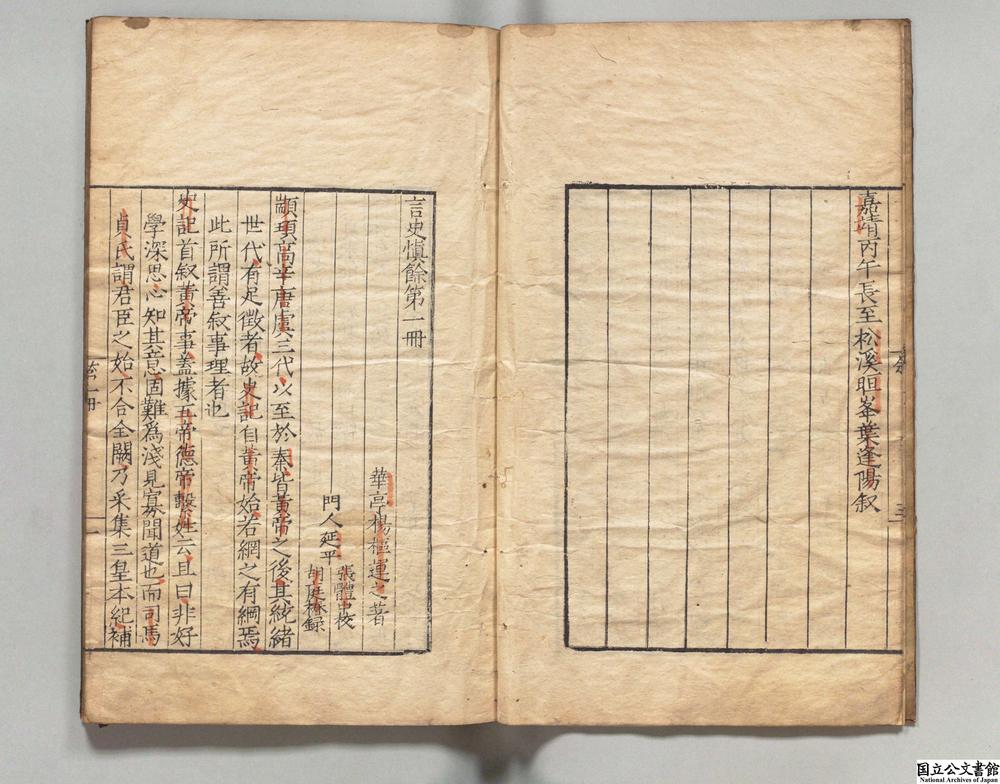 嘉靖丙午長至松溪䀿峯葉逢陽叙
三
言史慎餘第一冊
華亭楊樞運之著
門人延平
張體中校
胡庭椿録
顓頊高辛唐虞三代以至於秦皆黃帝之後其統緒
世代有足徵者故史記自黃帝始若網之有綱焉
此所謂善叙事理者也
史記首叙黃帝事蓋據五帝德帝繫姓云且曰非好
學深思心知其意固難為淺見寡聞道也而司馬
貞氏謂君臣之始不合全闕乃采集三皇本紀補
第一冊
一
国立公文書館
National Archives of Japan